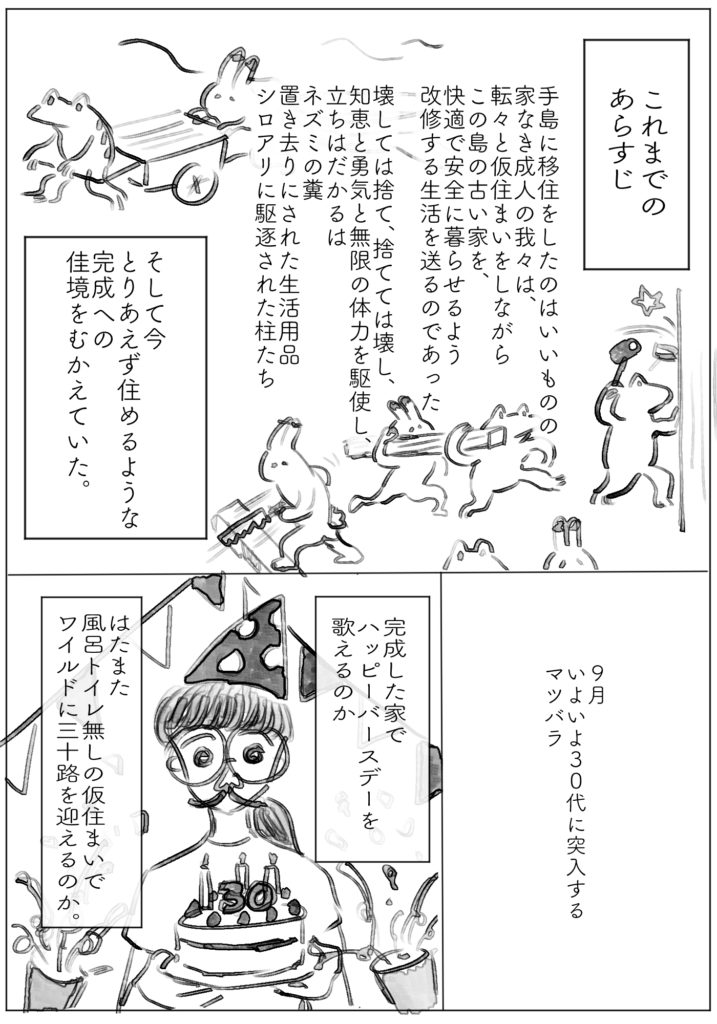 これまでの
あらすじ
手島に移住をしたのはいいものの
家なき成人の我々は、
転々と仮住まいをしながら
この島の古い家を、
快適で安全に暮らせるよう
改修する生活を送るのであった
壊しては捨て、捨てては壊し、
知恵と勇気と無限の体力を駆使し、
立ちはだかるは
ネズミの糞
置き去りにされた生活用品
シロアリに駆逐された柱たち
そして今
とりあえず住めるような
完成への
佳境をむかえていた。
9月
いよいよ30代に突入する
マツバラ
完成した家で
ハッピーバースデーを
歌えるのか
はたまた
風呂トイレ無しの仮住まいで
ワイルドに三十路を迎えるのか。
30